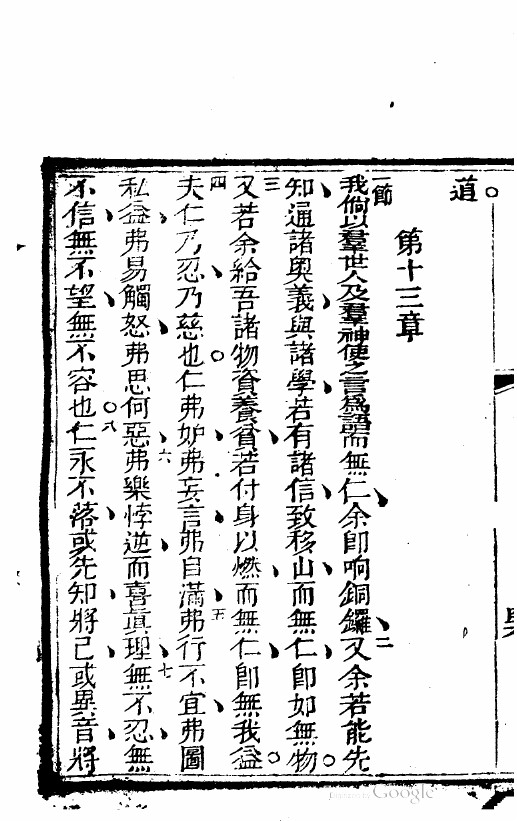 道
第十三章
一節我倘以羣世人及羣神使之言為語而無仁余即响銅鑼二又余若能先
知通諸奧義與諸學若有諸信致移山而無仁即如無物
三又若余給吾諸物資養貧若付身以燃而無仁即無我益
四夫仁乃忍乃慈也仁弗妒弗妄言弗自滿五弗行不宜弗圖
私益弗易觸怒弗思何惡六弗樂悖逆而喜真理七無不忍無
不信無不望無不容也八仁永不落或先知將已或異音將
Google